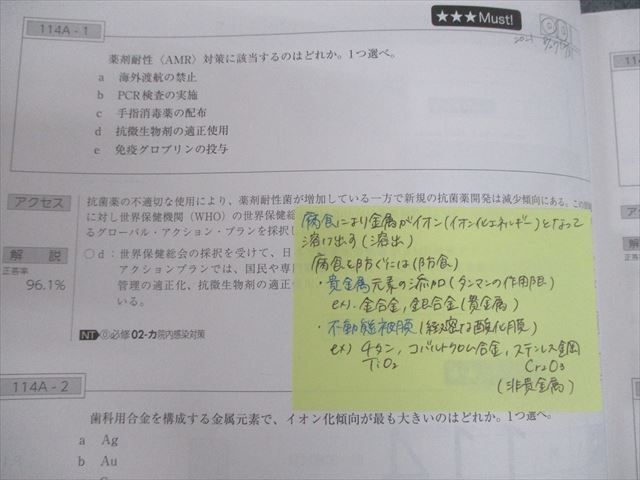 ★★★Must!
114A - 1
2021
薬剤耐性〈AMR〉対策に該当するのはどれか。1つ選べ。
a 海外渡航の禁止
b PCR検査の実施
c 手指消毒薬の配布
d 抗微生物剤の適正使用
e 免疫グロブリンの投与
アクセス
抗菌薬の不適切な使用により、薬剤耐性菌が増加している一方で新規の抗菌薬開発は減少傾向にある。この
に対し世界保健機関（WHO）の世界保健総
るグローバル・アクション・プランを採択し
解 説
正答率
96.1%
〇d：世界保健総会の採択を受けて、日
アクションプランでは、国民や専
管理の適正化、抗微生物剤の適正
いる。
NT ⓪必修02-カ院内感染対策
腐食により金属がイオン(イオン化エネルギー)となって
溶け出す(溶出)
腐食を防ぐには(防食)
・貴金属元素の添加(タンマンの作用限)
ex) 金合金, 金銀合金(貴金属)
・不動態被膜(緻密な酸化膜)
ex) チタン, コバルトクロム合金, ステンレス鋼
TiO₂
Cr₂O₃
(非貴金属)
114A - 2
歯科用合金を構成する金属元素で、イオン化傾向が最も大きいのはどれか。1つ選べ。
a Ag
b Au
114